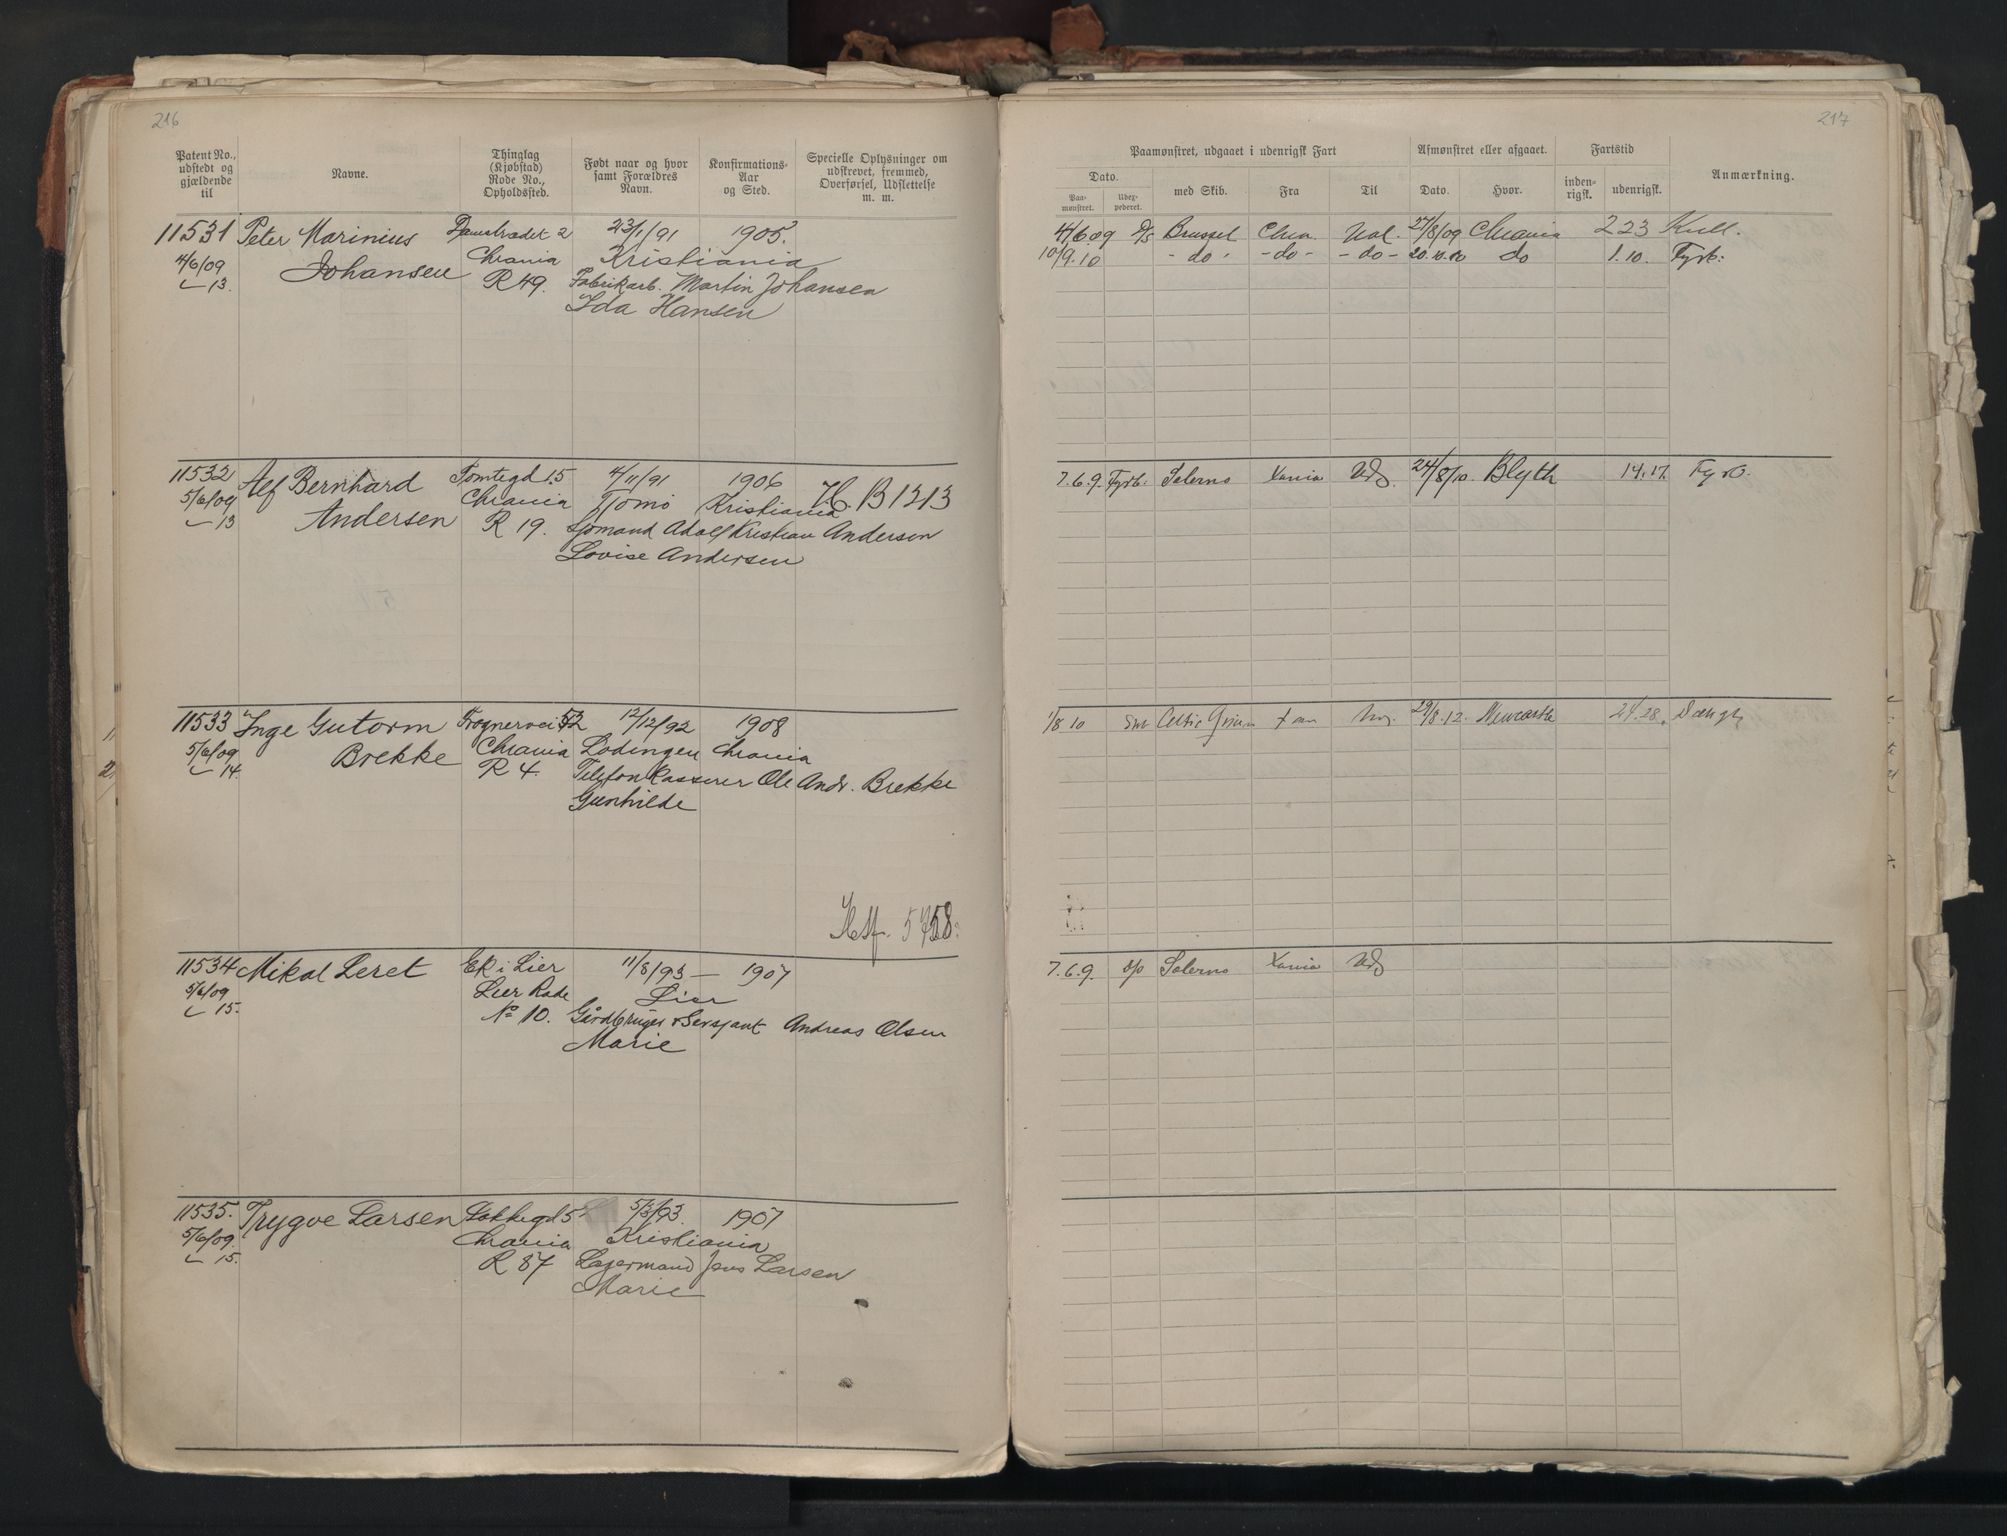 216
Patent No., udstedt og gjældende til
Navne.
Thinglag (Kjøbstad) Rode No., Opholdssted.
Født naar og hvor samt Forældres Navn.
Konfirmations-Aar og Sted.
Specielle Oplysninger om udskrevet, fremmed, Overførsel, Udslettelse m. m.
11531 Peter Marinius 2 23/1/91 1905.
4/6/09 Johansen Chrania Kristiania
13. R 49. Fabrikarb. Martin Johansen
Ida Hansen
11532 Alf Bernhard Tomtegd 15 4/11/91 1906
5/6/09 Andersen Chrania Tjømø Kristiania B 1213
13 R 19. Sjømand Adolf Kristian Andersen
Lovise Andersen
11533 Inge Gutorm Frognervei 52 12/12/92 1908
5/6/09 Brekke Chrania Lødingen Chrania
14. R 4. Telefonkasserer Ole Andr. Brekke
Gunhilde
11534 Mikal Leret Ek i Lier 11/8/93 — 1907
5/6/09 Lier Rode Lier
15. No 10. Gårdbruger & Sersjant Andreas Olsen
Marie
11535. Trygve Larsen Løkkegd 5 5/3/93. 1907
5/6/09. Chrania Kristiania
15. R 87 Lagermand Jens Larsen
Marie
217
Paamønstret, udgaaet i udenrigsk Fart
Afmønstret eller afgaaet.
Fartstid
Anmærkning.
Dato.
Paa-mønstret.
Udex-pederet.
med Skib.
Fra
Til
Dato.
Hvor.
inden-rigsk.
udenrigsk.
4/6 09 D/s Brussel Chra. Udl. 27/8/09 Chrania 2 23 Kull.
10/9.10 - do - - do - - do - 20.10.10 do 1.10. Fyrb:
7.6.9. Fyrb: Salerno Xania Udg 24/8/10. Blyth 14.17. Fyrb.
1/8 10 Celtic 29/8.12. Newcastle 24.28.
7.6.9. Salerno Xania Udg